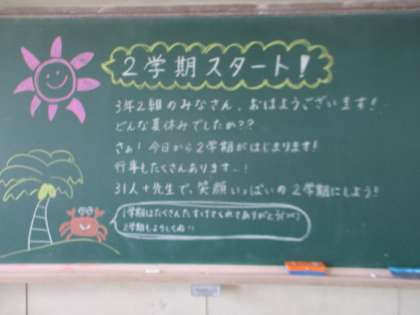 2学期スタート!
3年2組のみなさん、おはようございます!
どんな夏休みでしたか??
さぁ!今日から2学期がはじまります!
行事もたくさんあります…!
31人+先生で、笑顔いっぱいの2学期にしよう!
1学期はたくさんたすけてくれてありがとう
2学期もよろしくね!!